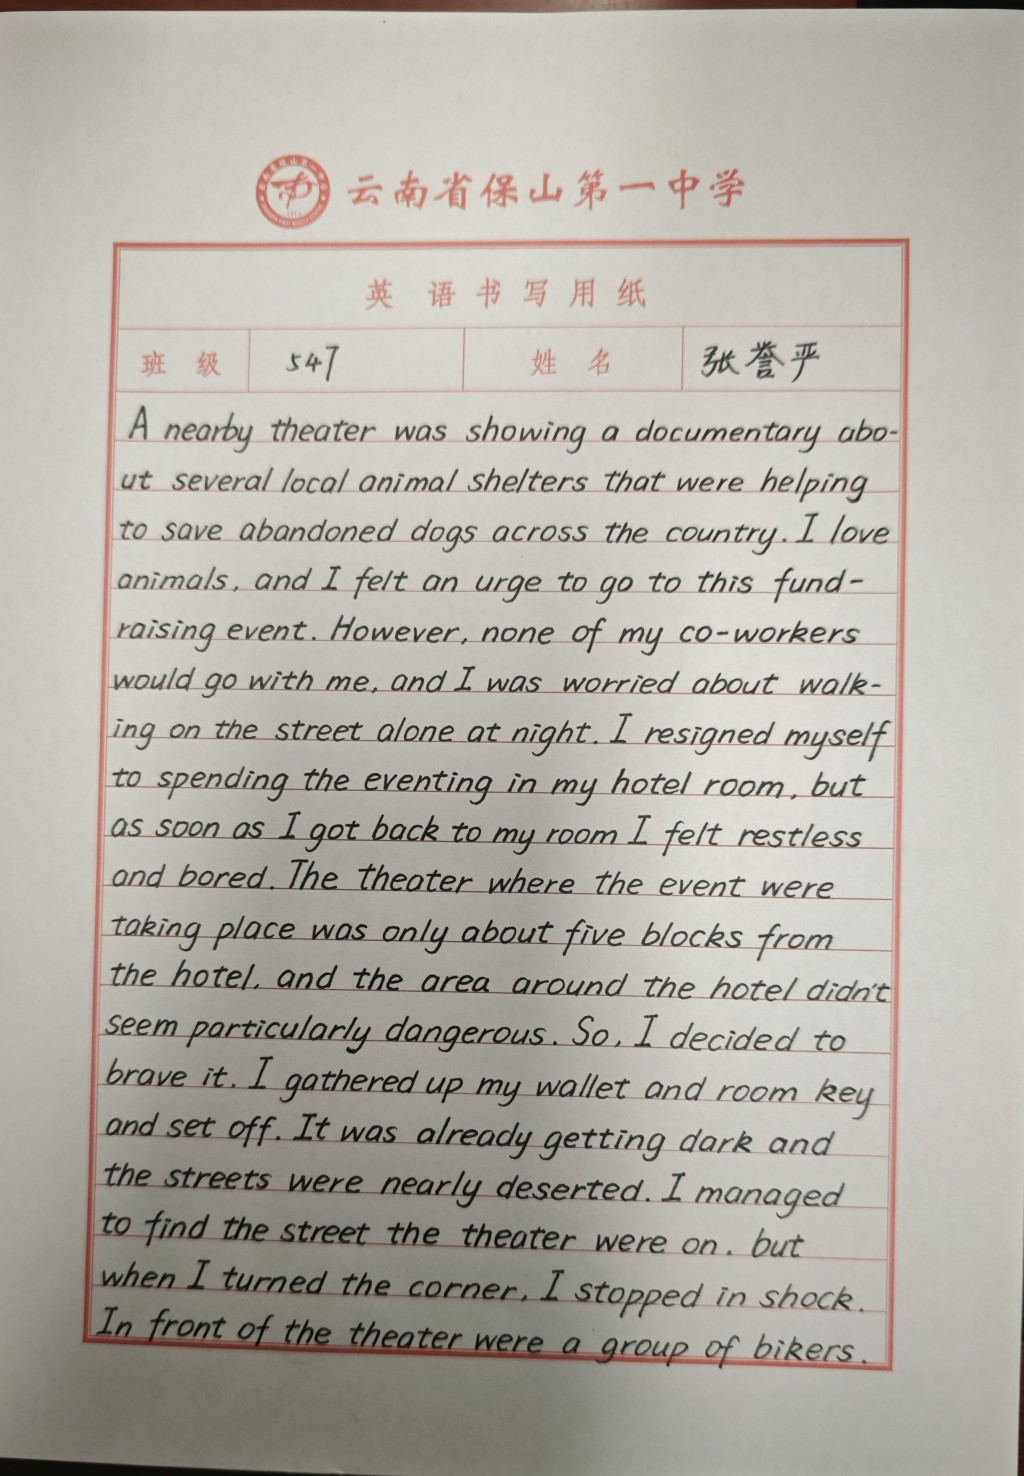 云南省保山第一中学
英语书写用纸
班级 547 姓名 张誉严
A nearby theater was showing a documentary abo-
ut several local animal shelters that were helping
to save abandoned dogs across the country. I love
animals, and I felt an urge to go to this fund-
raising event. However, none of my co-workers
would go with me, and I was worried about walk-
ing on the street alone at night. I resigned myself
to spending the eventing in my hotel room, but
as soon as I got back to my room I felt restless
and bored. The theater where the event were
taking place was only about five blocks from
the hotel, and the area around the hotel didn't
seem particularly dangerous. So, I decided to
brave it. I gathered up my wallet and room key
and set off. It was already getting dark and
the streets were nearly deserted. I managed
to find the street the theater were on. but
when I turned the corner, I stopped in shock.
In front of the theater were a group of bikers.